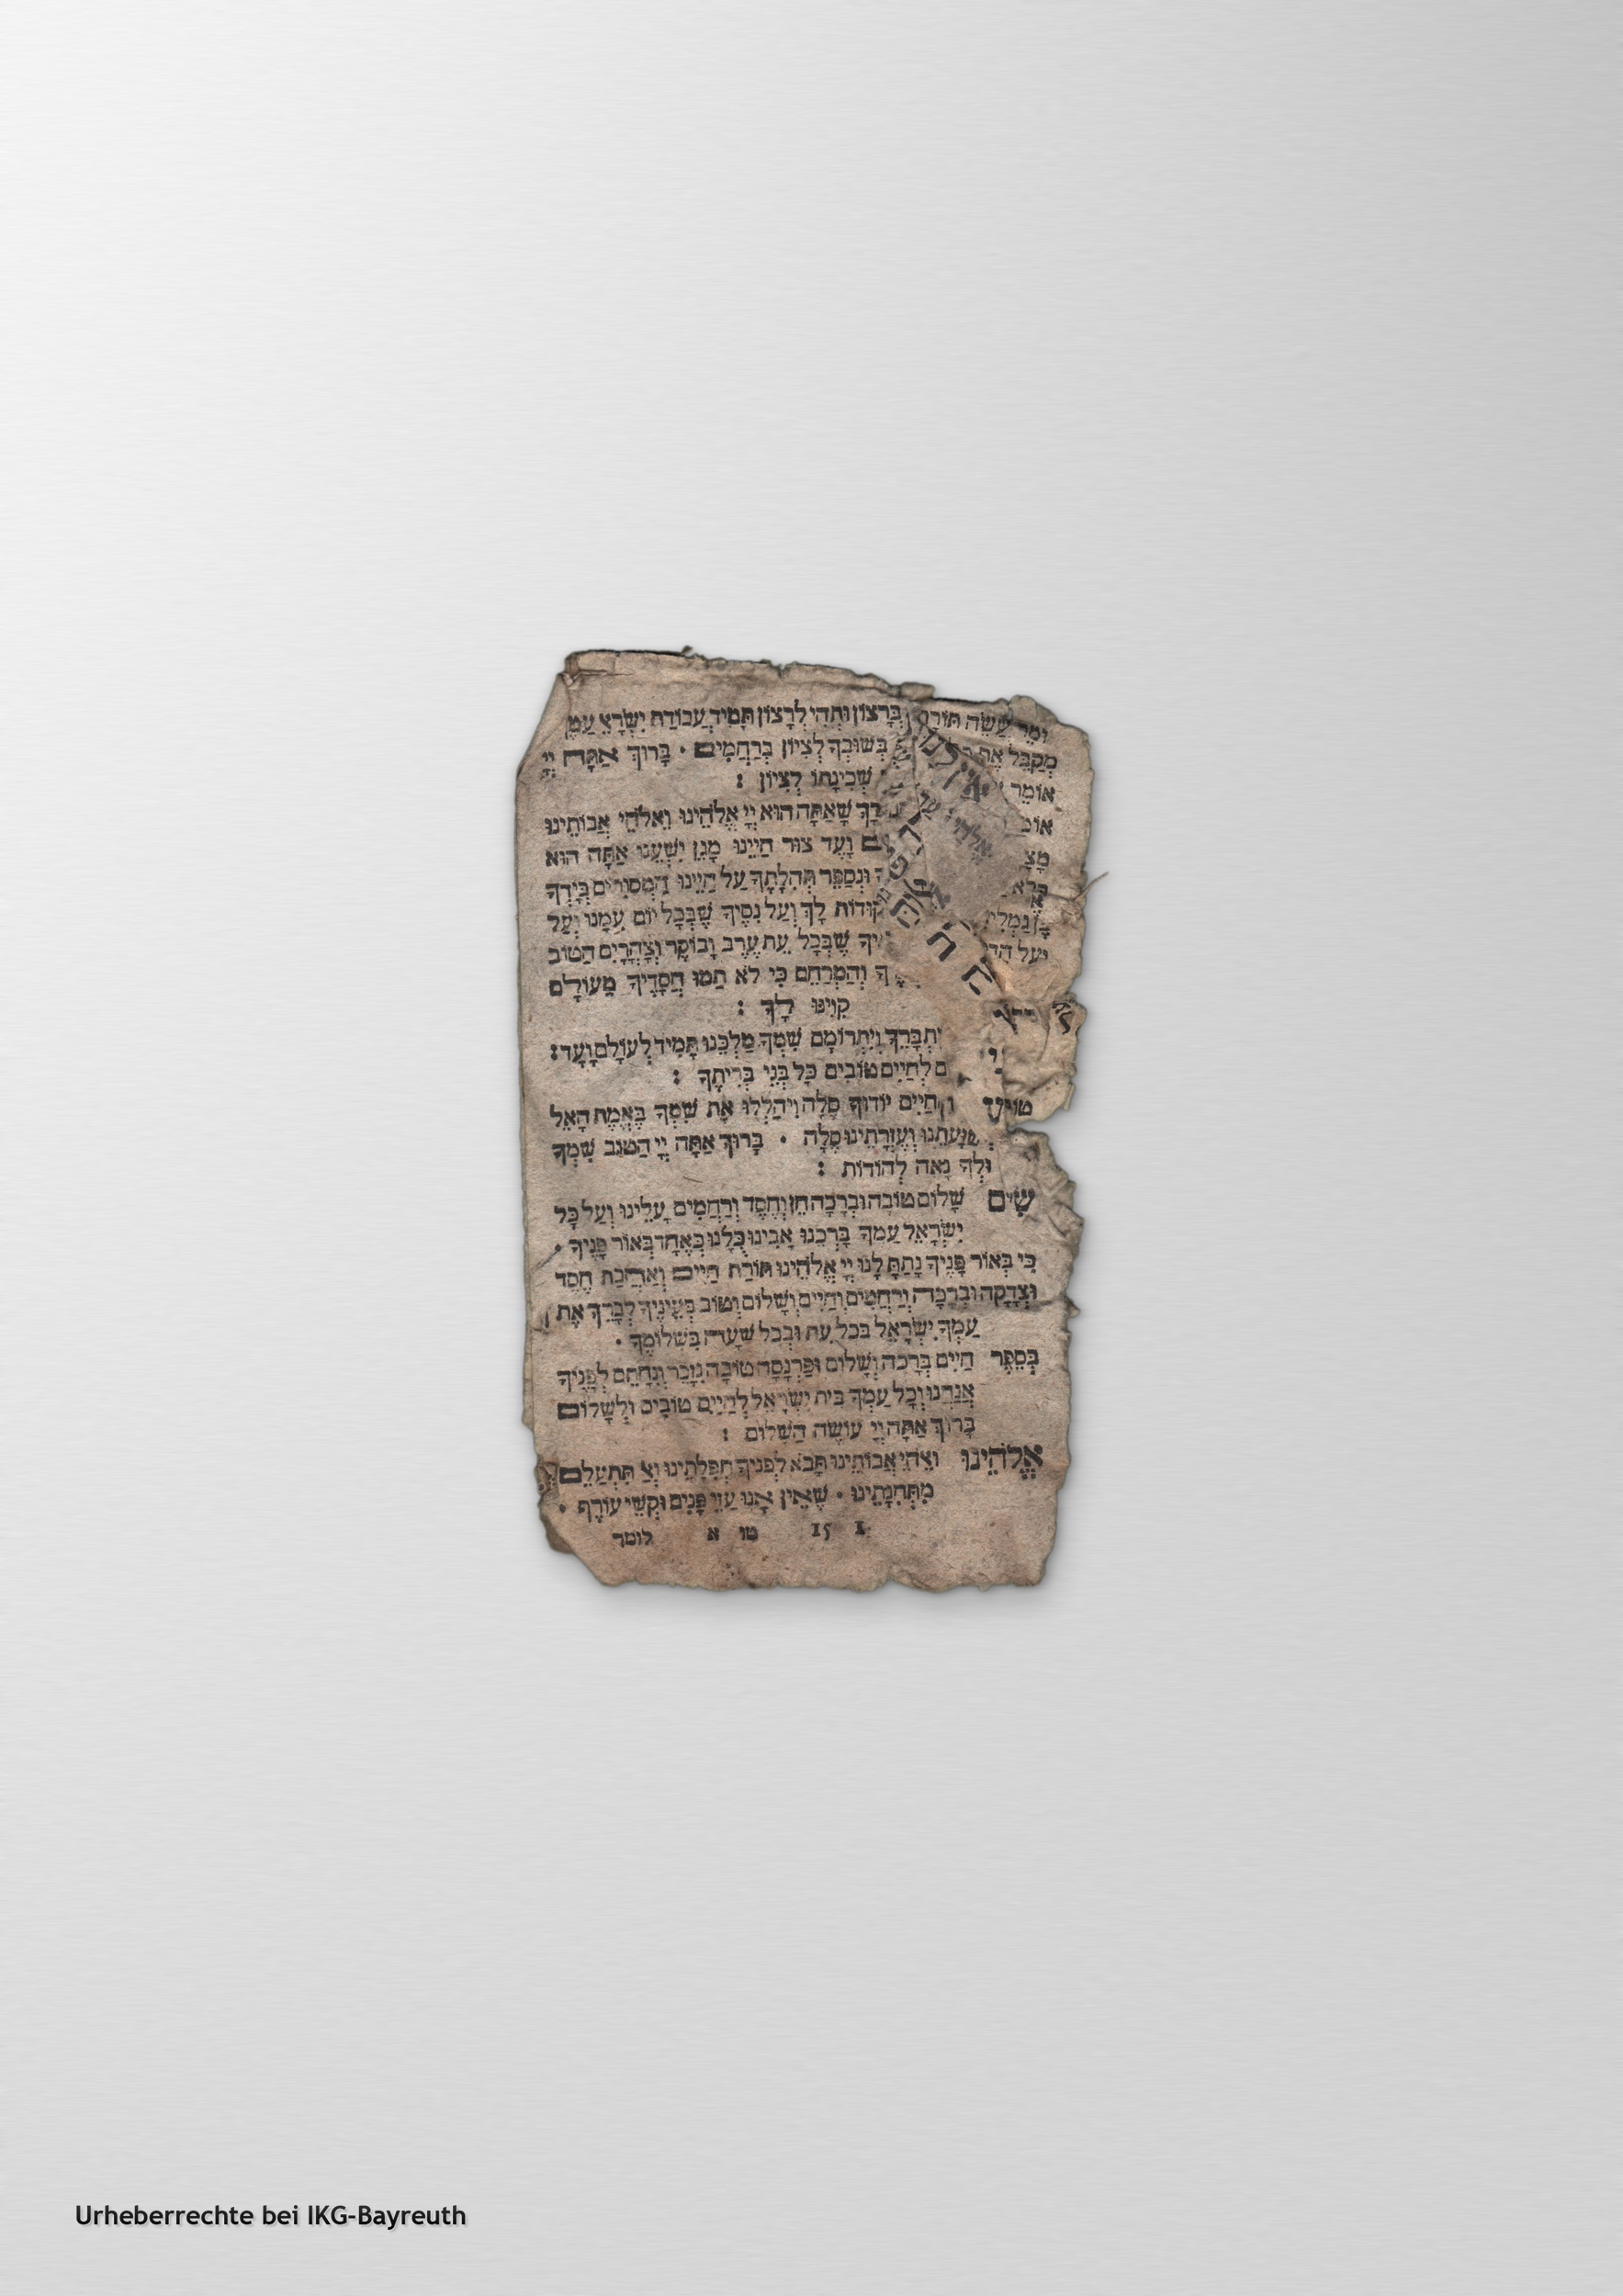 בְּרָצוֹן וּתְהִי לְרָצוֹן תָּמִיד עֲבוֹדַת יִשְׂרָאֵ עַמֶּךָ
בְּשׁוּבְךָ לְצִיּוֹן בְּרַחֲמִים · בָּרוּךְ אַתָּה יְיָ
שְׁכִינָתוֹ לְצִיּוֹן :
שָׁאַתָּה הוּא יְיָ אֱלֹהֵינוּ וֵאלֹהֵי אֲבוֹתֵינוּ
וָעֶד צוּר חַיֵּינוּ מָגֵן יִשְׁעֵנוּ אַתָּה הוּא
וּנְסַפֵּר תְּהִלָּתֶךָ עַל חַיֵּינוּ הַמְּסוּרִים בְּיָדֶךָ
לָךְ וְעַל נִסֶּיךָ שֶׁבְּכָל יוֹם עִמָּנוּ וְעַל
שֶׁבְּכָל עֵת עֶרֶב וָבוֹקֶר וְצָהֳרָיִם הַטּוֹב
וְהַמְרַחֵם כִּי לֹא תַמּוּ חֲסָדֶיךָ מֵעוֹלָם
קִוִּינוּ לָךְ :
יִתְבָּרֵךְ וְיִתְרוֹמֵם שִׁמְךָ מַלְכֵּנוּ תָּמִיד לְעוֹלָם וָעֶד :
לְחַיִּים טוֹבִים כָּל בְּנֵי בְרִיתֶךָ :
חַיִּים יוֹדוּךָ סֶּלָה וִיהַלְלוּ אֶת שִׁמְךָ בֶּאֱמֶת הָאֵל
יְשׁוּעָתֵנוּ וְעֶזְרָתֵינוּ סֶלָה · בָּרוּךְ אַתָּה יְיָ הַטּוֹב שִׁמְךָ
וּלְךָ נָאֶה לְהוֹדוֹת :
שִׂים שָׁלוֹם טוֹבָה וּבְרָכָה חֵן וָחֶסֶד וְרַחֲמִים עָלֵינוּ וְעַל כָּל
יִשְׂרָאֵל עַמֶּךָ בָּרְכֵנוּ אָבִינוּ כֻּלָּנוּ כְּאֶחָד בְּאוֹר פָּנֶיךָ ·
כִּי בְאוֹר פָּנֶיךָ נָתַתָּ לָּנוּ יְיָ אֱלֹהֵינוּ תּוֹרַת חַיִּים וְאַהֲבַת חֶסֶד
וּצְדָקָה וּבְרָכָה וְרַחֲמִים וְחַיִּים וְשָׁלוֹם וְטוֹב בְּעֵינֶיךָ לְבָרֵךְ אֶת
עַמְּךָ יִשְׂרָאֵל בְּכָל עֵת וּבְכָל שָׁעָה בִּשְׁלוֹמֶךָ ·
בְּסֵפֶר חַיִּים בְּרָכָה וְשָׁלוֹם וּפַרְנָסָה טוֹבָה נִזָּכֵר וְנֵחָתֵם לְפָנֶיךָ
אֲנַחְנוּ וְכָל עַמְּךָ בֵּית יִשְׂרָאֵל לְחַיִּים טוֹבִים וּלְשָׁלוֹם
בָּרוּךְ אַתָּה יְיָ עוֹשֶׂה הַשָּׁלוֹם :
אֱלֹהֵינוּ וֵאלֹהֵי אֲבוֹתֵינוּ תָּבֹא לְפָנֶיךָ תְּפִלָּתֵינוּ וְאַל תִּתְעַלֵּם
מִתְּחִנָּתֵינוּ · שֶׁאֵין אָנוּ עַזֵּי פָנִים וּקְשֵׁי עוֹרֶף ·
15 1 טו א לומר
Urheberrechte bei IKG-Bayreuth